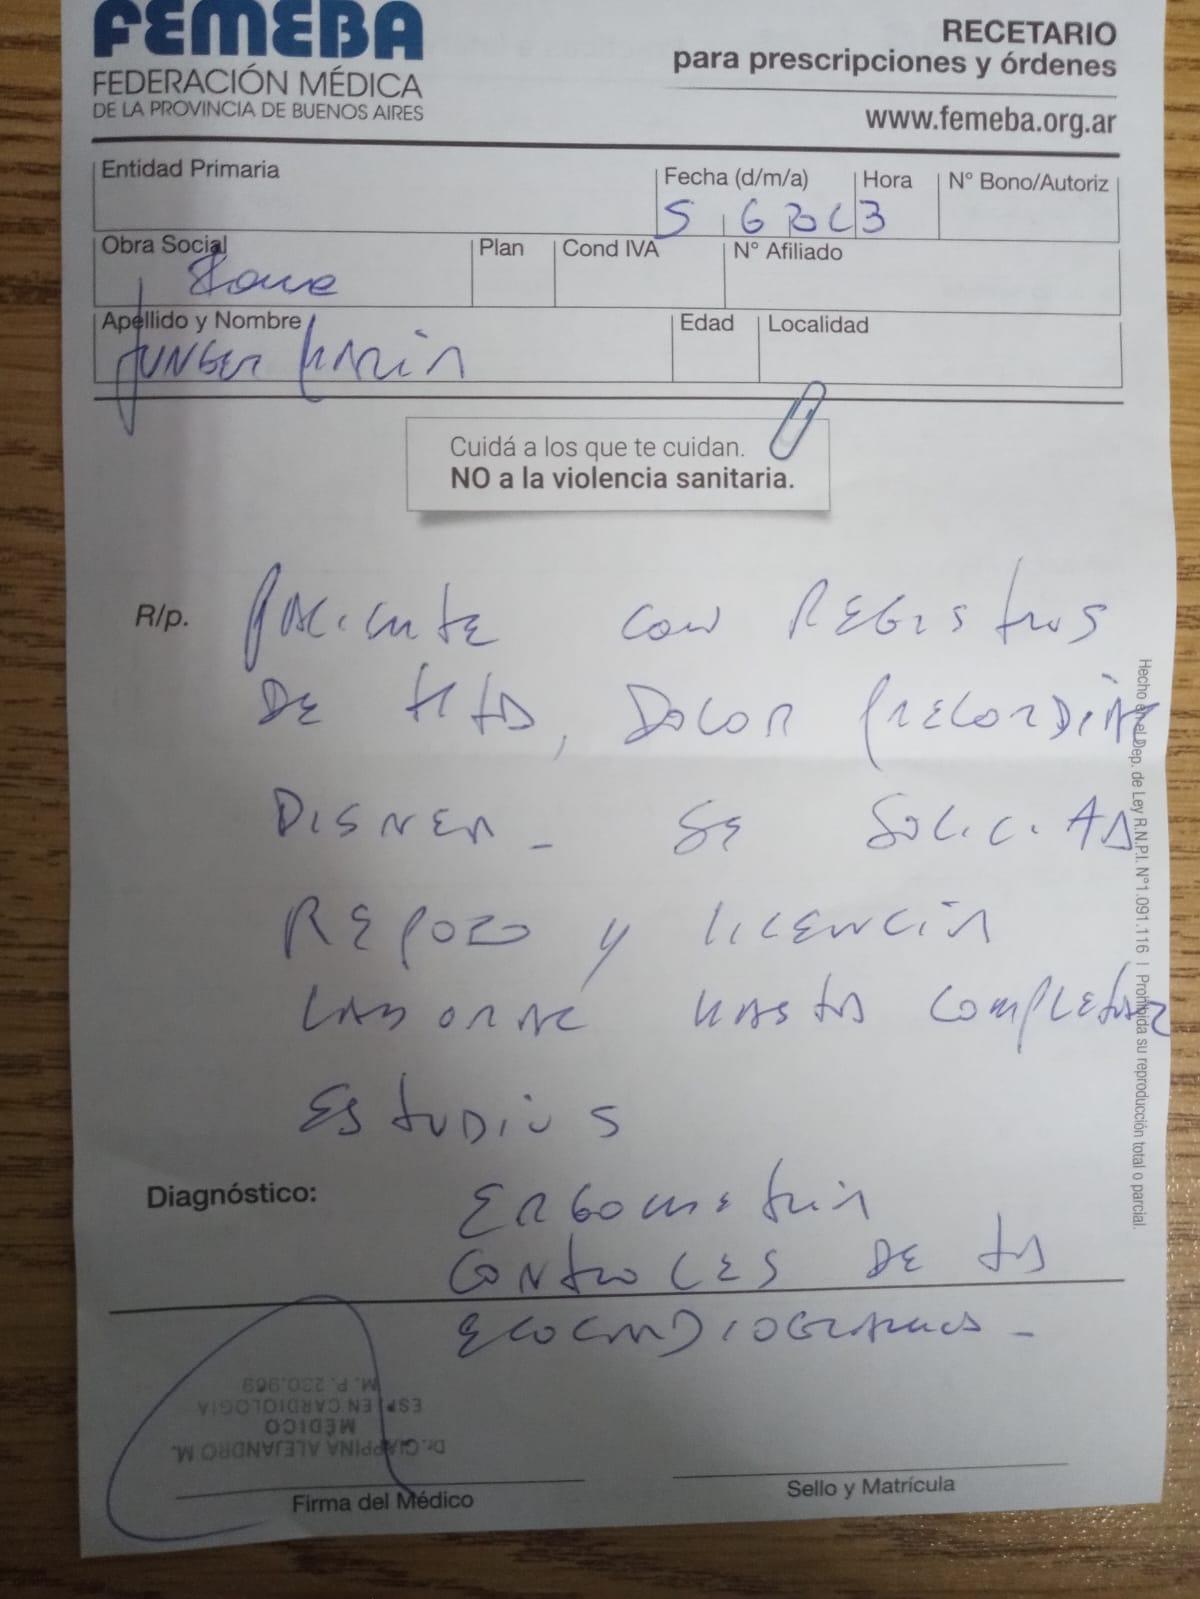 FEMEBA
FEDERACIÓN MÉDICA
DE LA PROVINCIA DE BUENOS AIRES
RECETARIO
para prescripciones y órdenes
www.femeba.org.ar
Entidad Primaria
Fecha (d/m/a) Hora N° Bono/Autoriz
5 6
Obra Social Plan Cond IVA N° Afiliado
Apellido y Nombre Edad Localidad
JUNGER
Cuidá a los que te cuidan.
NO a la violencia sanitaria.
R/p.
PACIENTE CON REGISTROS
DE HTA, DOLOR PRECORDIAL
DISNEA - SE SOLICITA
REPOZO Y LICENCIA
LABORAL HASTA COMPLETAR
ESTUDIOS
Diagnóstico:
ERGOMETRIA
CONTROLES DE TA
ECOCARDIOGRAMA -
Dr. GIAPPINA ALEJANDRO M.
MEDICO
ESP. EN CARDIOLOGIA
M. P. 230.969
Firma del Médico
Sello y Matrícula
Hecho en el Dep. de Ley R.N.P.I. N°1.091.116 | Prohibida su reproducción total o parcial.